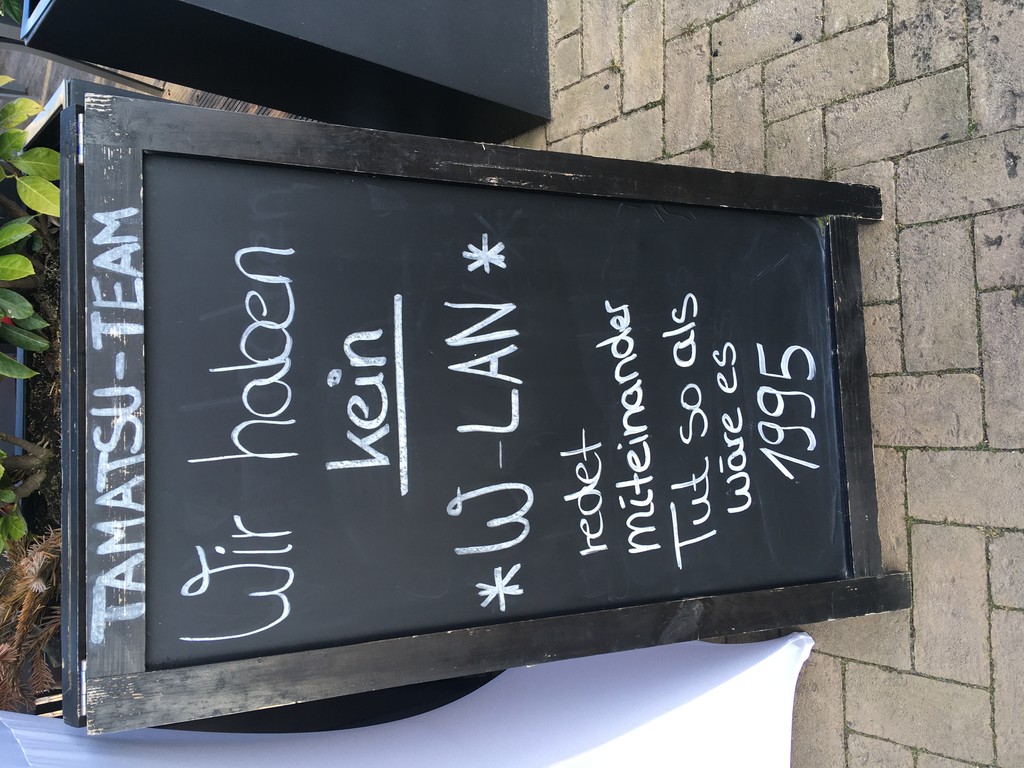 TAMATSU-TEAM
Wir haben
kein
* W-LAN *
redet
miteinander
Tut so als
wäre es
1995